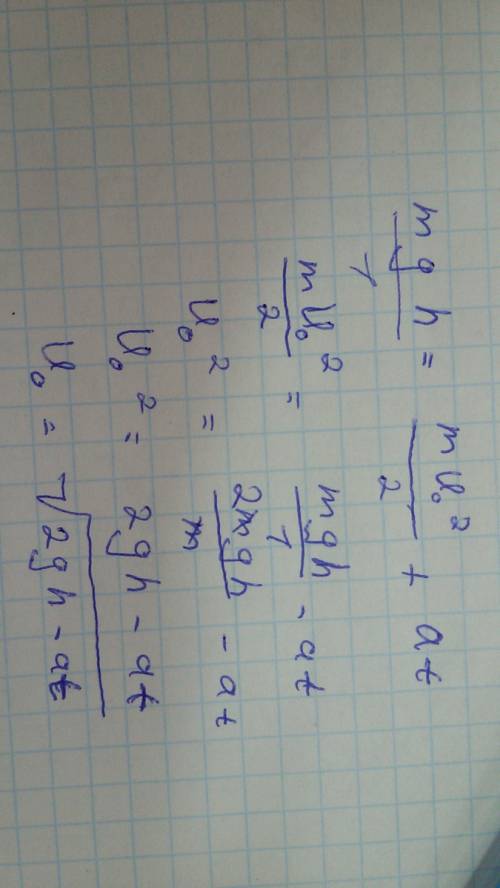 mgh/1 = mU₀²/2 + at
mU₀²/2 = mgh/1 - at
U₀² = 2mgh/m - at
U₀² = 2gh - at
U₀ = √(2gh - at)